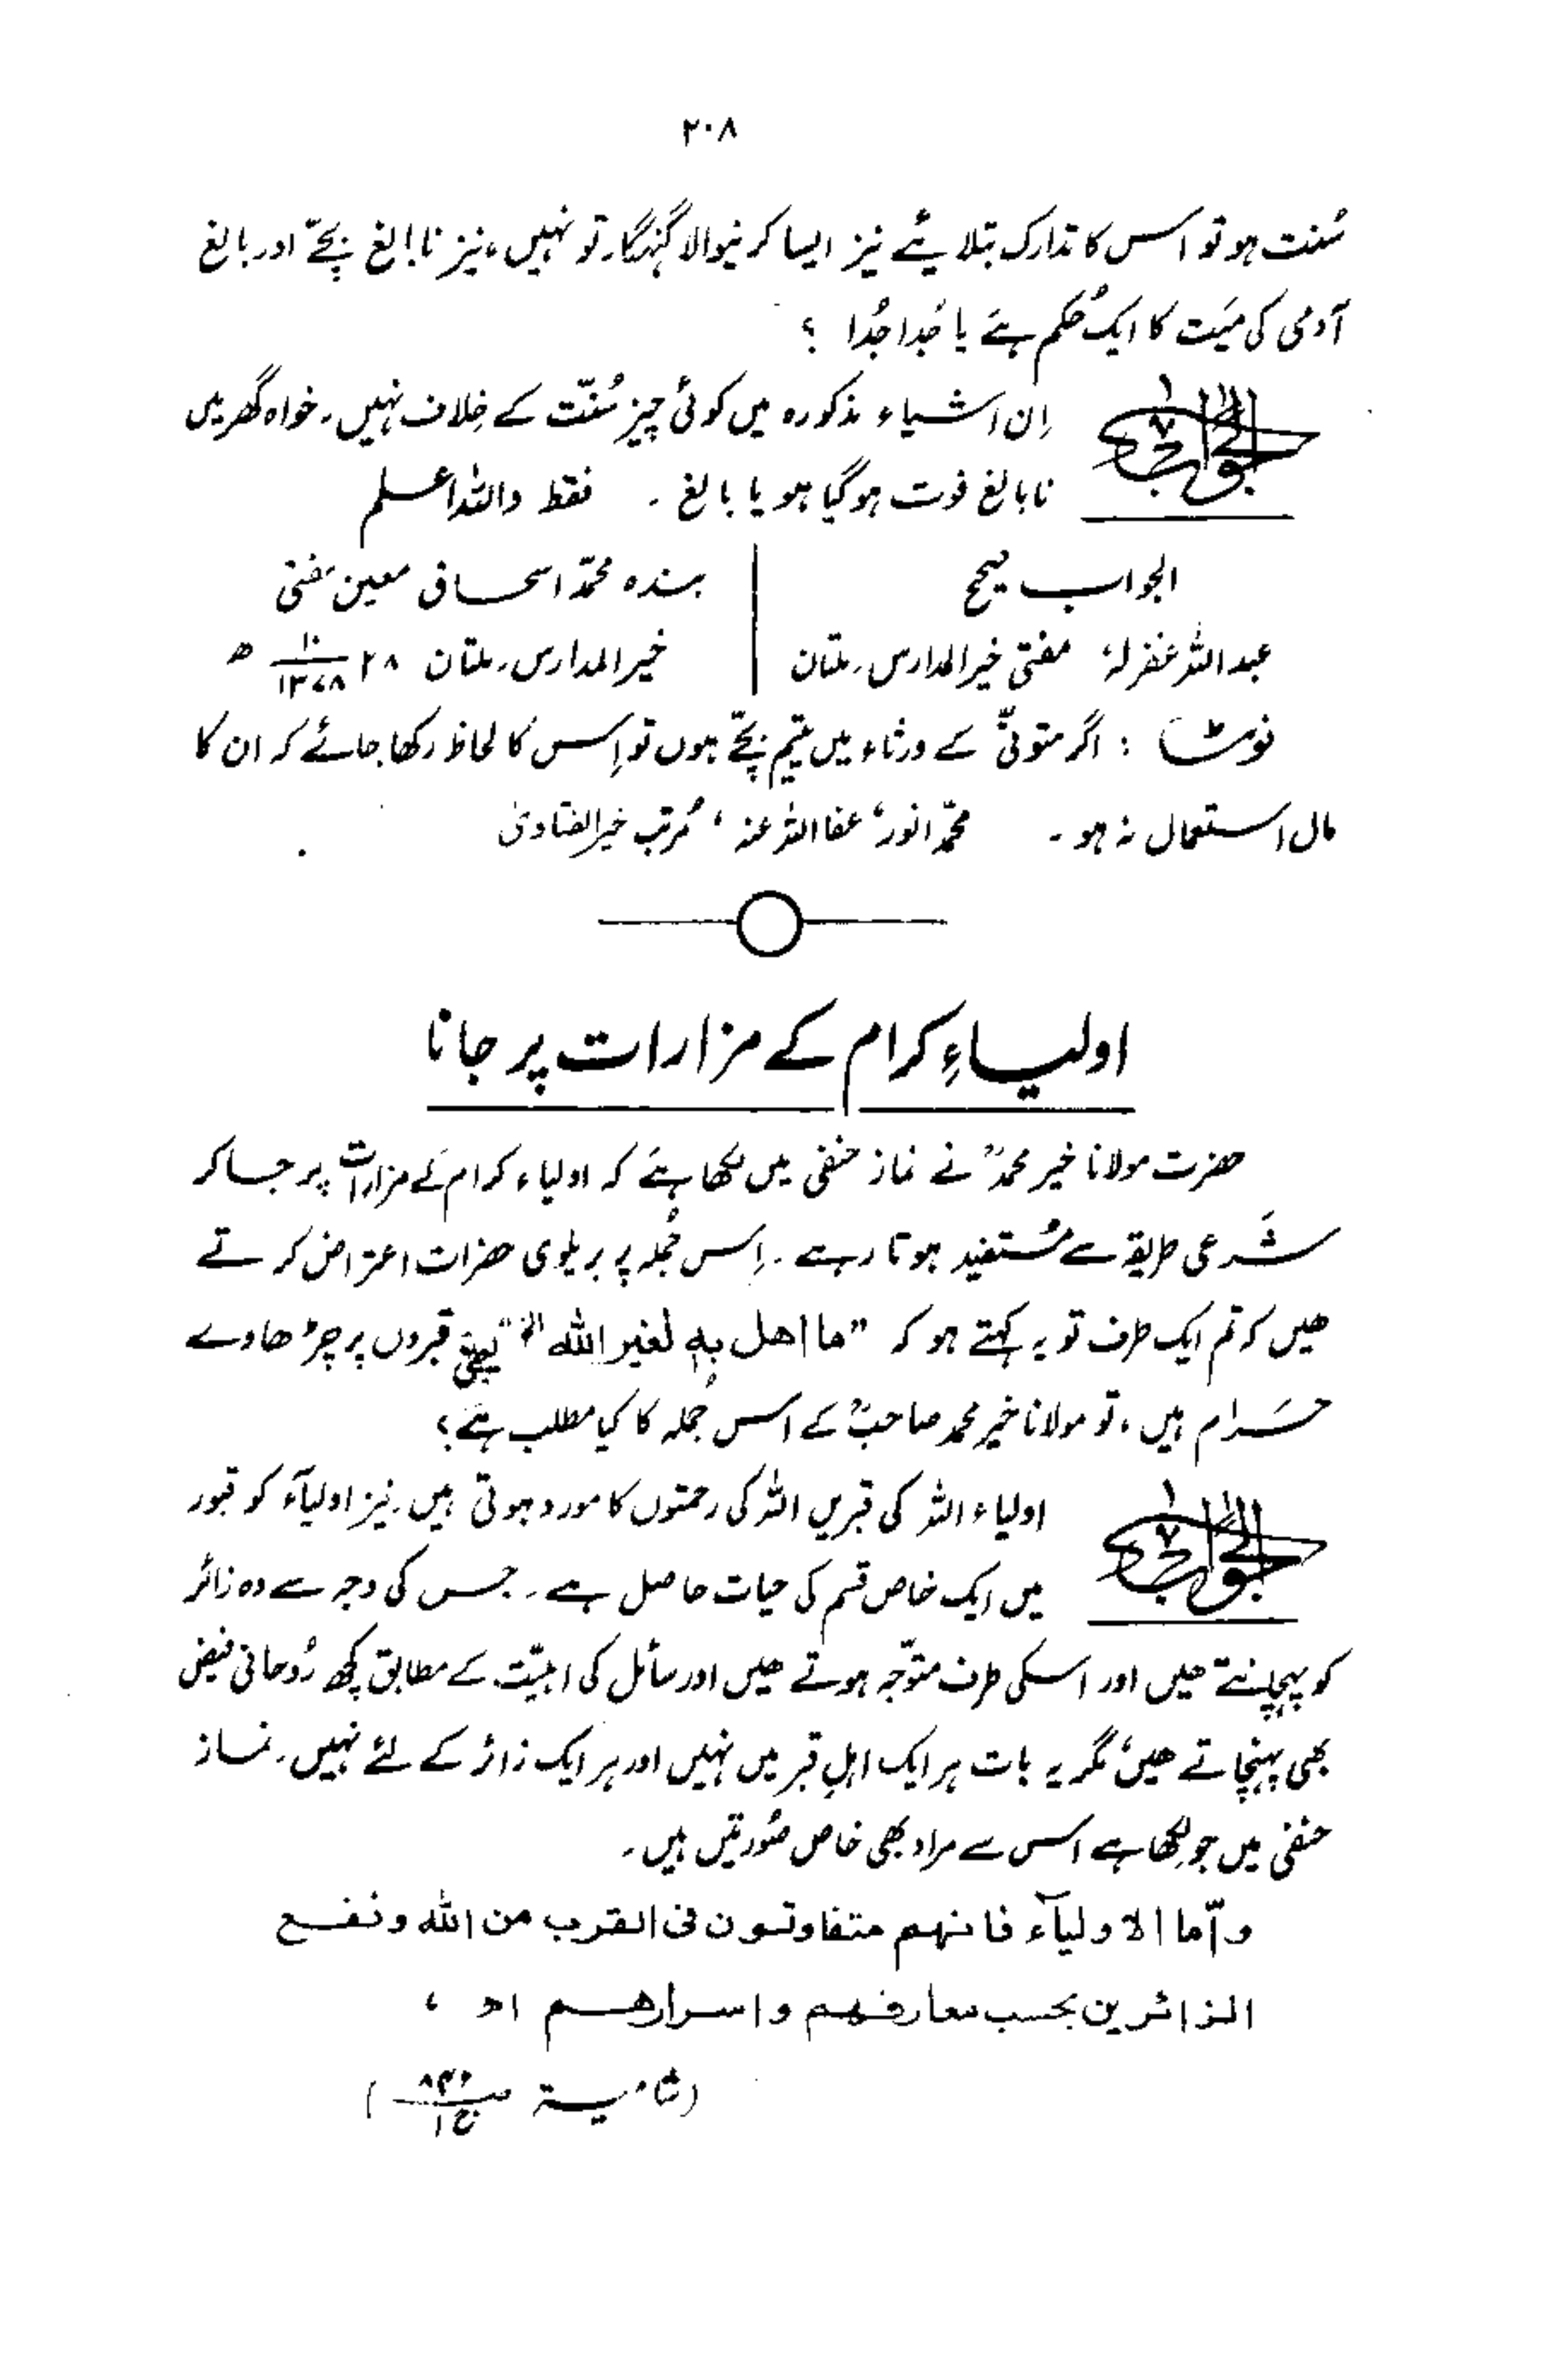 ۲۰۸
سُنت ہو تو اس کا تدارک بتلایئے نیز ایسا کرنیوالا گنہگار تو نہیں، نیز نابالغ بچّے اور بالغ
آدمی کی میّت کا ایک حُکم ہے یا جُدا جُدا ؟
الجواب
اِن اشیاء مذکورہ میں کوئی چیز سُنّت کے خِلاف نہیں۔ خواہ گھر میں
نابالغ فوت ہوگیا ہو یا بالغ ۔ فقط واللہ اعلم
الجواب صحیح
عبداللہ غفرلہٗ مفتی خیرالمدارس، ملتان
بندہ محمّد اسحاق معین مفتی
خیرالمدارس، ملتان ۲۸/۱۰/۱۳۷۸ھ
نوٹ : اگر متوفیّٰ کے ورثاء میں یتیم بچّے ہوں تو اِس کا لحاظ رکھا جائے کہ ان کا
مال استعمال نہ ہو ۔ محمّد انورؔ عفا اللہ عنہ، مُرتب خیرالفتاویٰ
اولیاءِ کرام کے مزارات پر جانا
حضرت مولانا خیر محمدؒ نے نماز حنفی میں لکھا ہے کہ اولیاء کرام کے مزارات پر جا کر
شَرعی طریقے سے مُستفید ہوتا رہے ۔ اِس جُملہ پر بریلوی حضرات اعتراض کرتے
ھیں کہ تم ایک طرف تو یہ کہتے ہو کہ "ما اھل بہٖ لغیر اللہ الخ" یعنی قبروں پر چڑھاوے
حَرام ہیں، تو مولانا خیر محمد صاحبؒ کے اس جُملہ کا کیا مطلب ہے؟
الجواب
اولیاء اللہ کی قبریں اللہ کی رحمتوں کا مورد ہوتی ہیں۔ نیز اولیآء کو قبور
میں ایک خاص قسم کی حیات حاصل ہے ۔ جس کی وجہ سے وہ زائر
کو پہچانتے ھیں اور اسکی طرف متوّجہ ہوتے ھیں اور سائل کی اہلیّت کے مطابق کچھ رُوحانی فیض
بھی پہنچاتے ھیں مگر یہ بات ہر ایک اہلِ قبر میں نہیں اور ہر ایک زائر کے لئے نہیں۔ نماز
حنفی میں جو لکھا ہے اس سے مراد بھی خاص صُورتیں ہیں ۔
واّما الاولیآء فانھم متفاوتون فی القرب من اللہ ونفع
الزائرین بحسب معارفھم واسرارھم اھ ،
(شامیة ج۱)